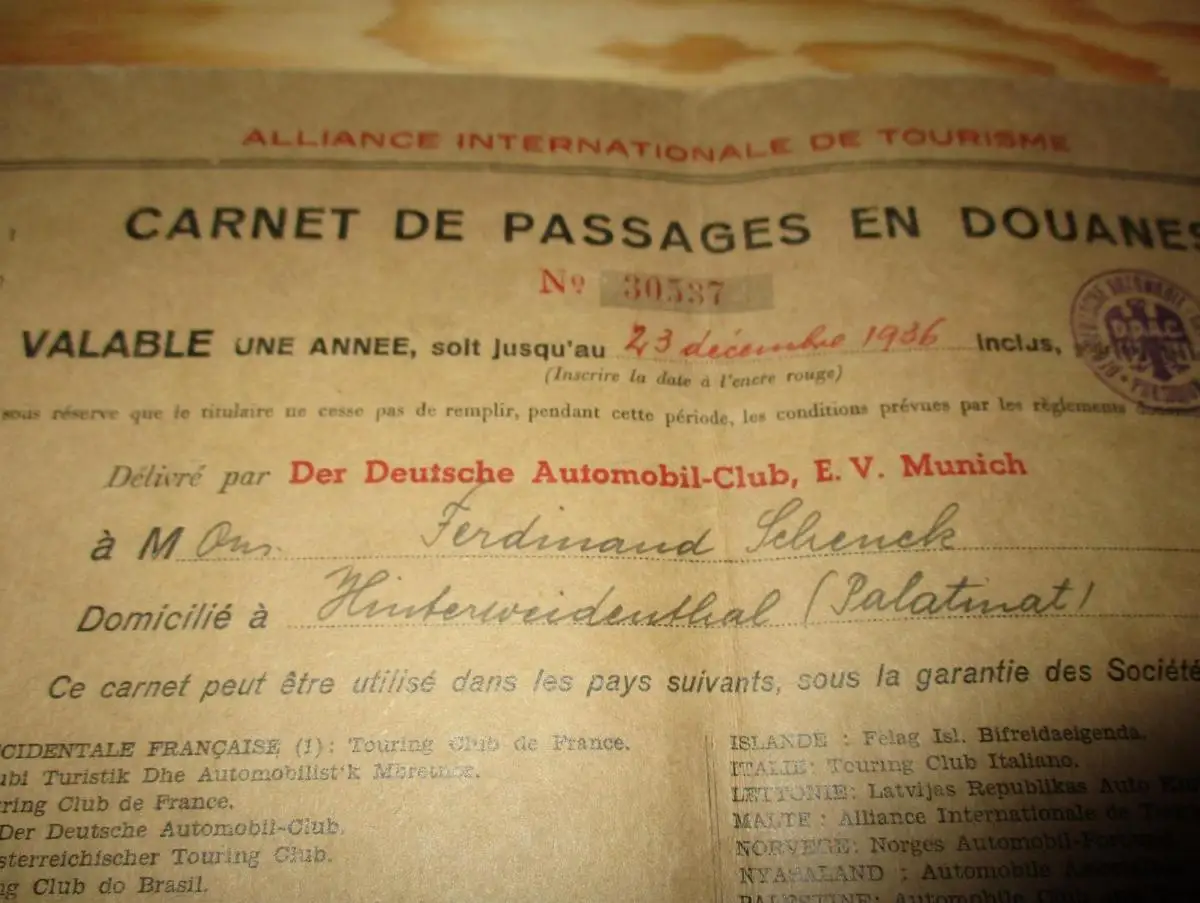 ALLIANCE INTERNATIONALE DE TOURISME
CARNET DE PASSAGES EN DOUANES
Nº 30537
VALABLE UNE ANNEE, soit jusqu'au 23 décembre 1936 inclus,
(Inscrire la date à l'encre rouge)
sous réserve que le titulaire ne cesse pas de remplir, pendant cette période, les conditions prévues par les règlements
Délivré par Der Deutsche Automobil-Club, E. V. Munich
à M Ons. Ferdinand Schenck
Domicilié à Hinterweidenthal (Palatinat)
Ce carnet peut être utilisé dans les pays suivants, sous la garantie des Société
CCIDENTALE FRANÇAISE (1): Touring Club de France.
ubi Turistik Dhe Automobilist'k Mbretnor.
ring Club de France.
Der Deutsche Automobil-Club.
sterreichischer Touring Club.
ng Club do Brasil.
ISLANDE : Felag Isl. Bifreidaeigenda.
ITALIE: Touring Club Italiano.
LETTONIE: Latvijas Republikas Auto
MALTE : Alliance Internationale de
NORVEGE: Norges Automobil-
NYASALAND : Automobile
PALESTINE: Automobile Club